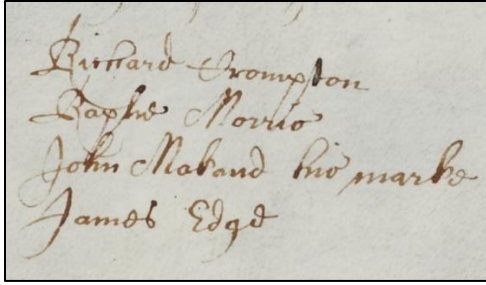 Richard Crompton
Raphe Morris
John Makand his marke
James Edge